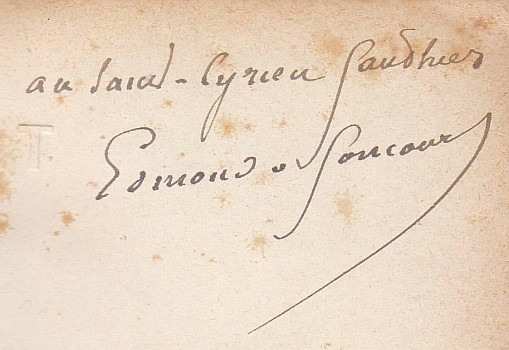 au Saint-Cyrien Gauthier
T
Edmond de Goncourt